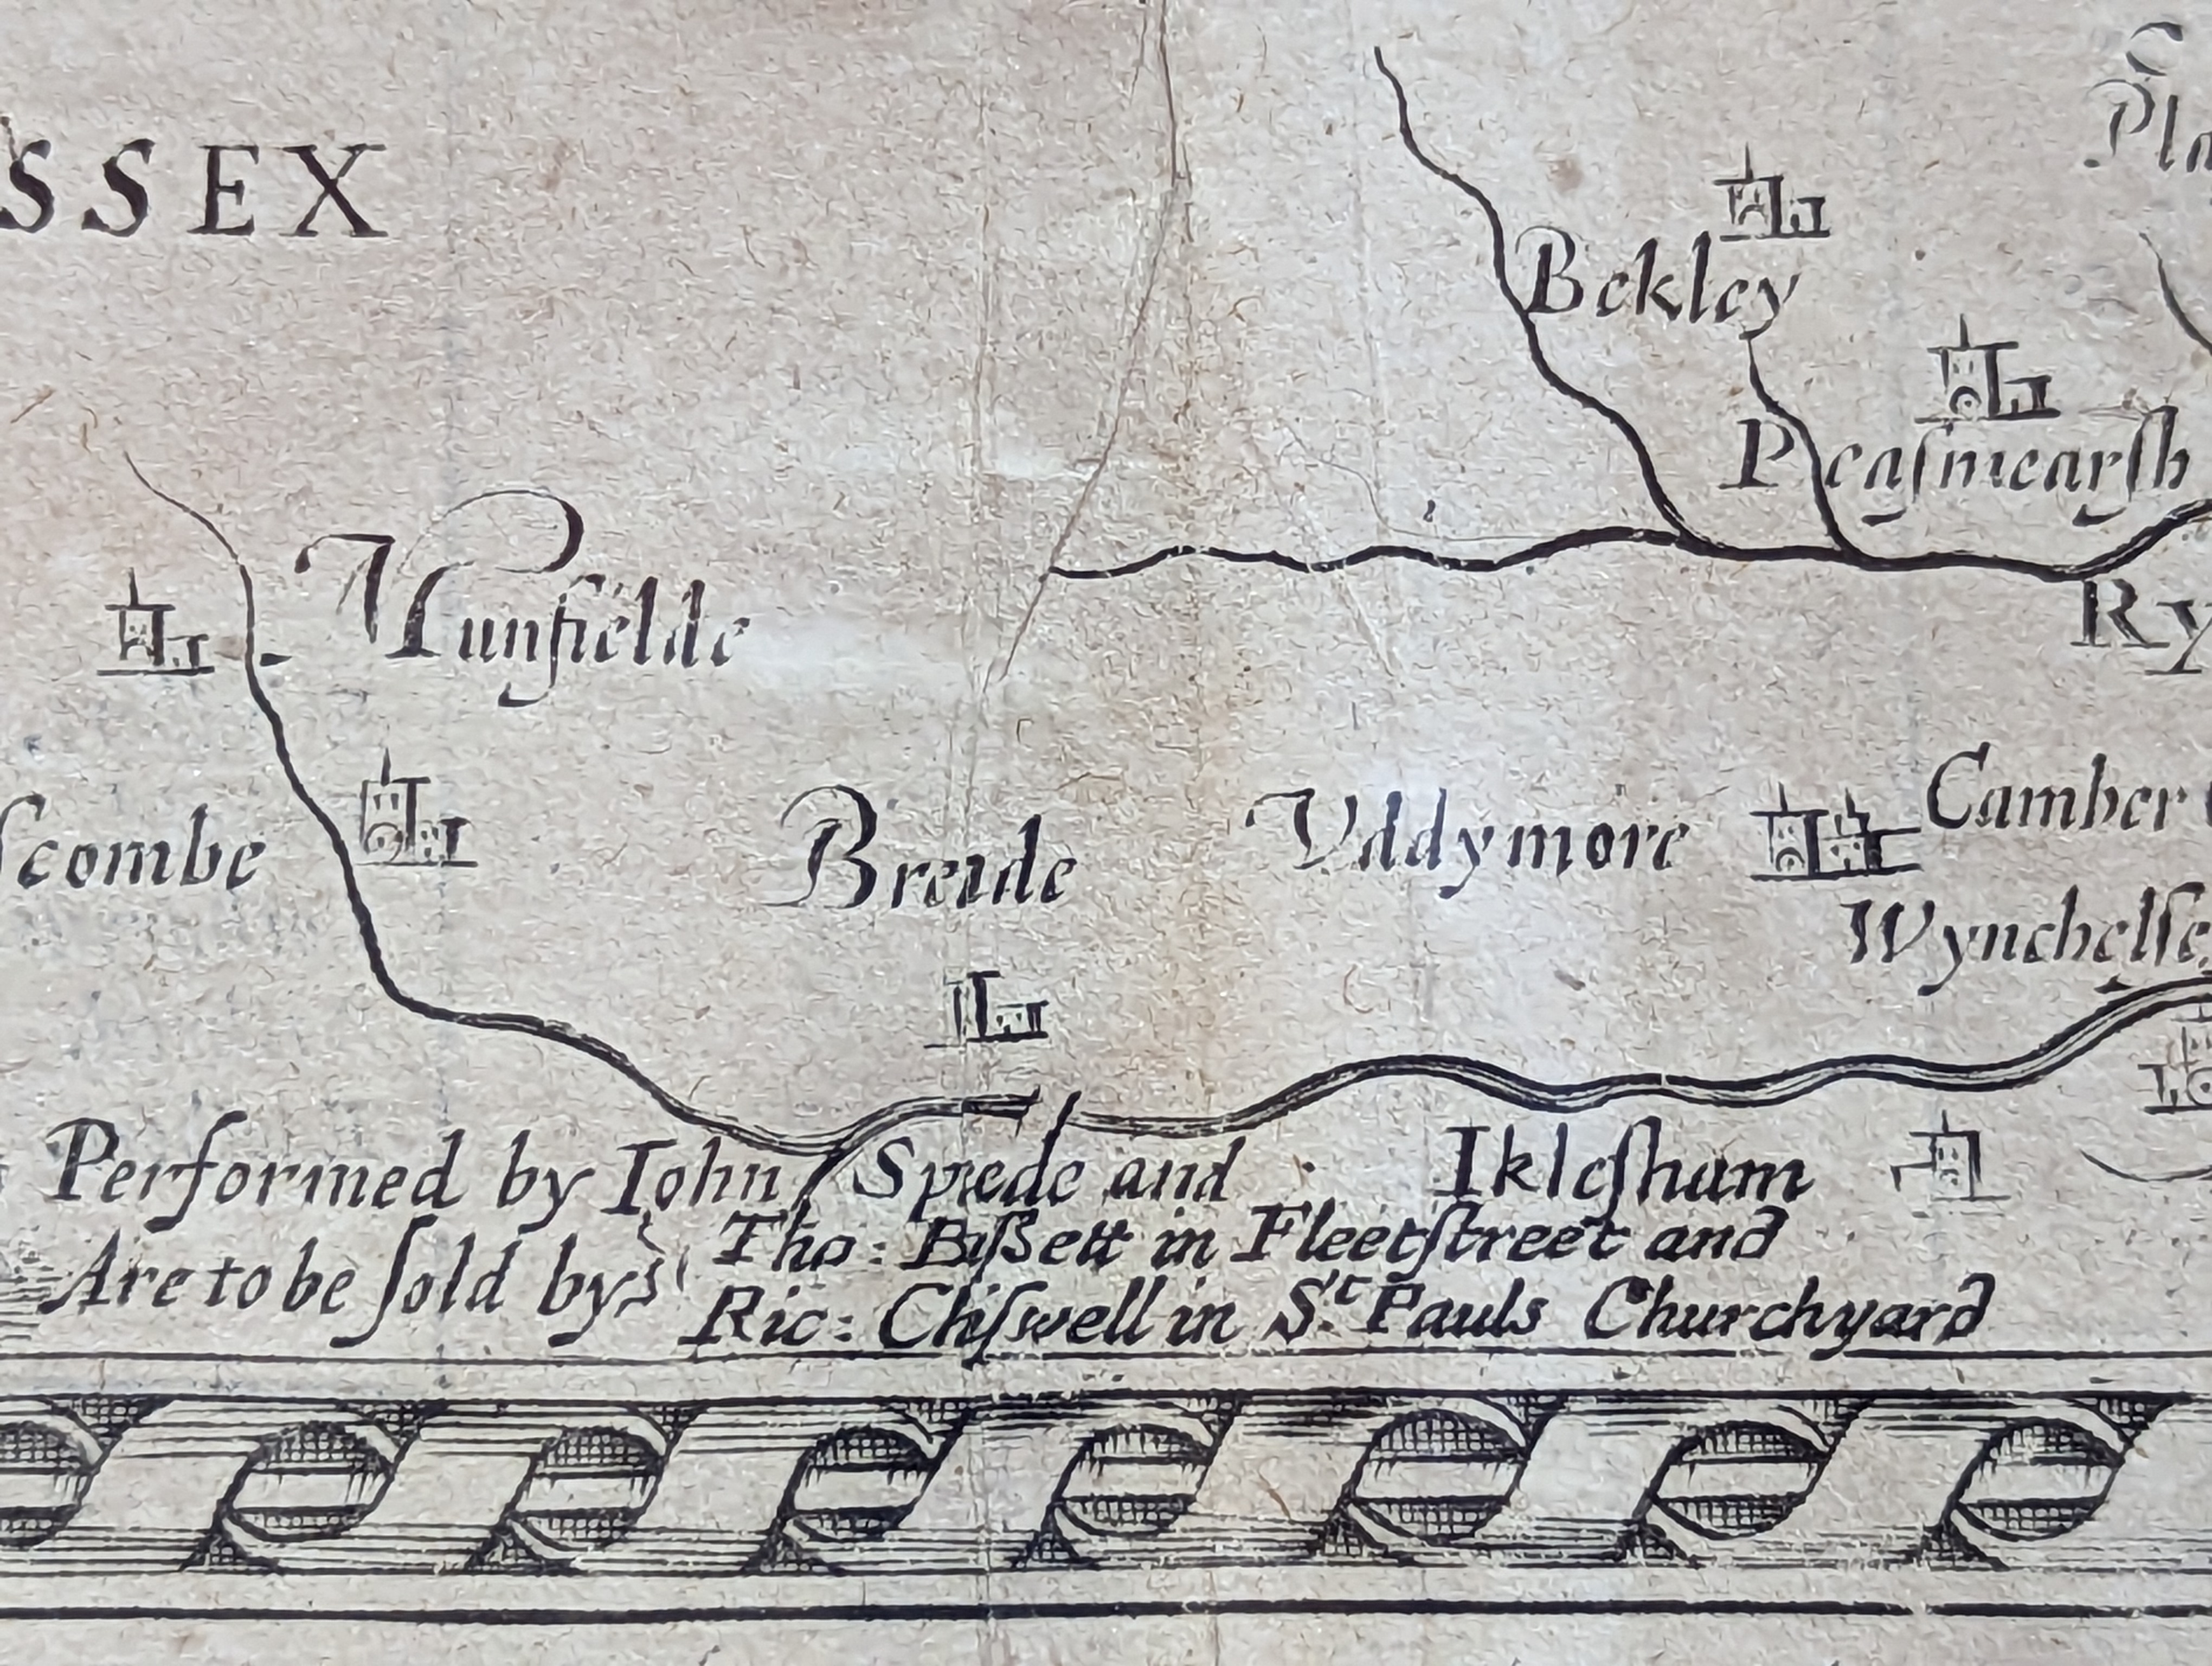 SSEX
Pla
Bekley
Peaſmearſh
Nunfielde
Ry
ſcombe
Breide
Vddymore
Camber
Wynchelſe
Performed by Iohn Speede and
Ikleſham
Are to be ſold by
Tho: Bißett in Fleetſtreet and
Ric: Chiſwell in St. Pauls Churchyard